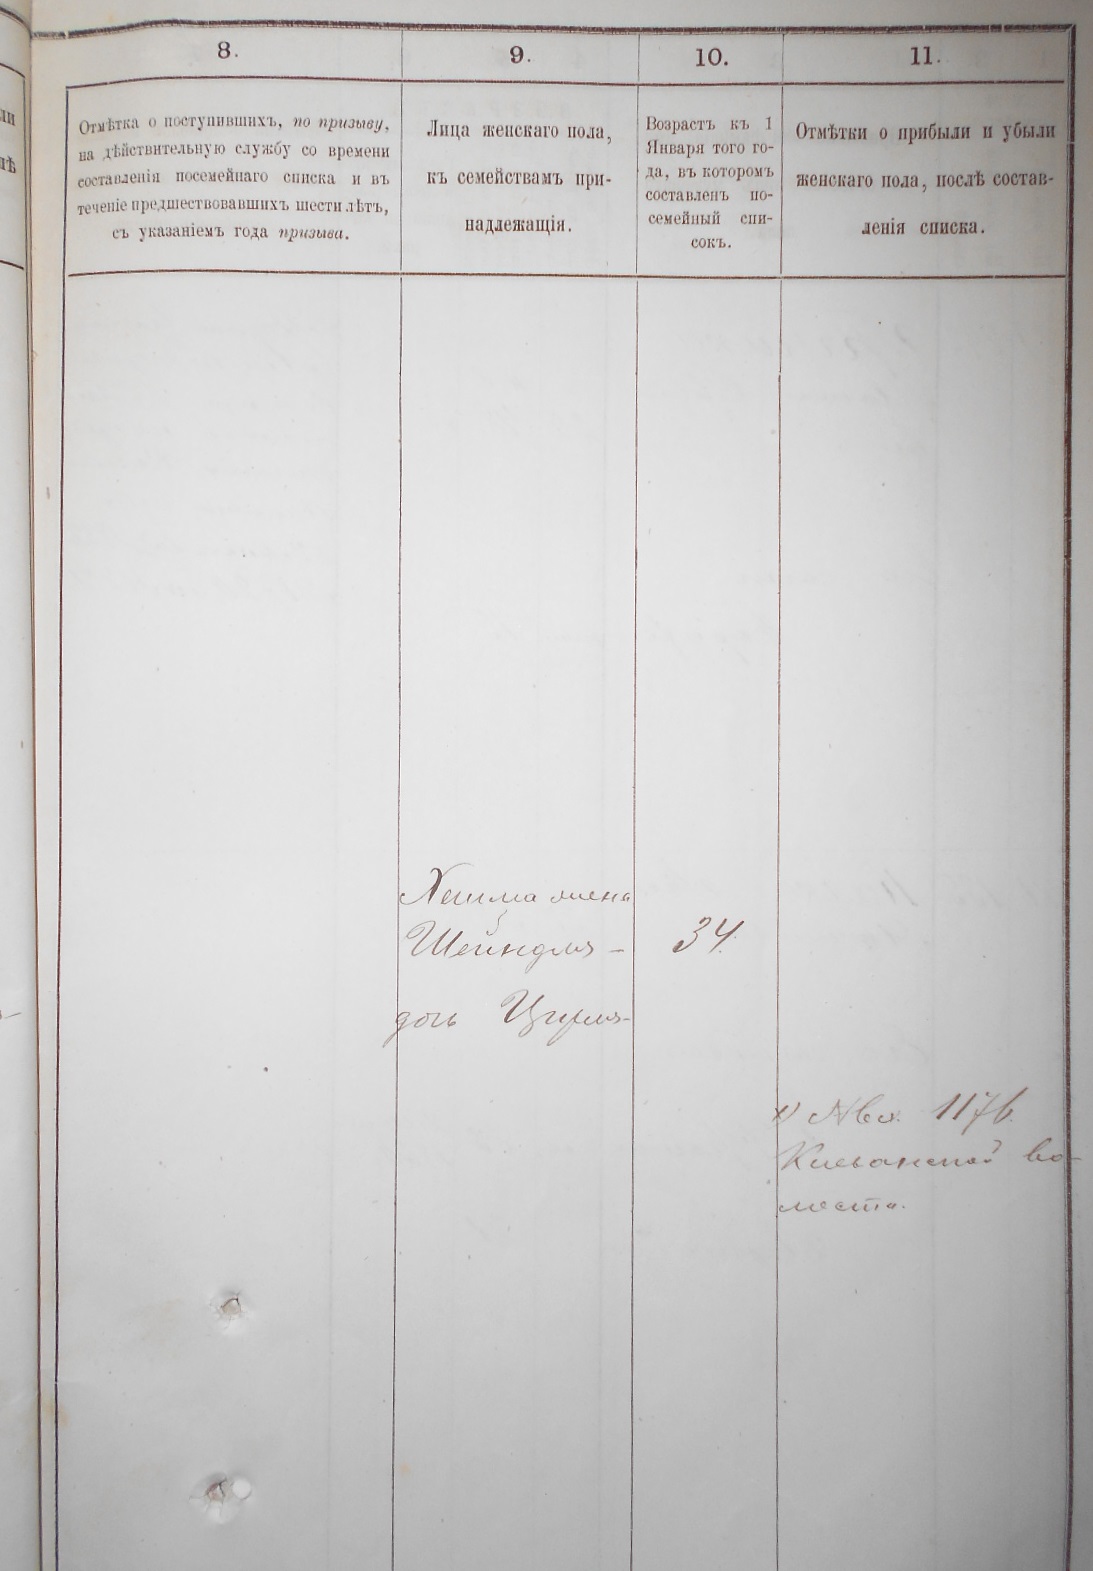 8.
9.
10.
11.
Отмѣтка о поступившихъ, по призыву,
на дѣйствительную службу со времени
составленія посемейнаго списка и въ
теченіе предшествовавшихъ шести лѣтъ,
съ указаніемъ года призыва.
Лица женскаго пола,
къ семействамъ при-
надлежащія.
Возрастъ къ 1
Января того го-
да, въ которомъ
составленъ по-
семейный спи-
сокъ.
Отмѣтки о прибыли и убыли
женскаго пола, послѣ состав-
ленія списка.
жена
Шейндля -
34.
дочь Цирля-